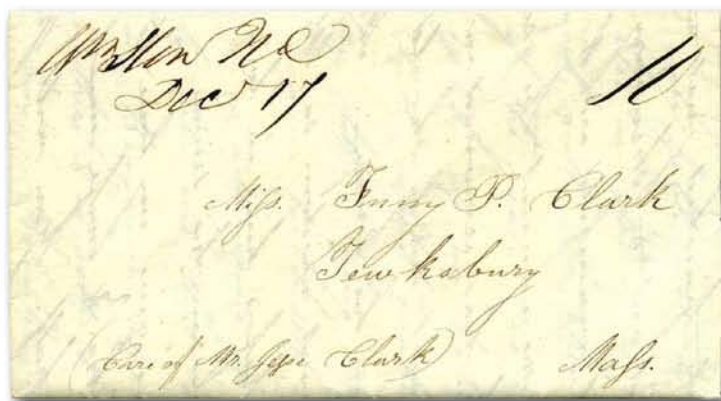 N C
Dec 17
10
Miss. Fanny P. Clark
Tewksbury
(Care of Mr. Jesse Clark) Mass.